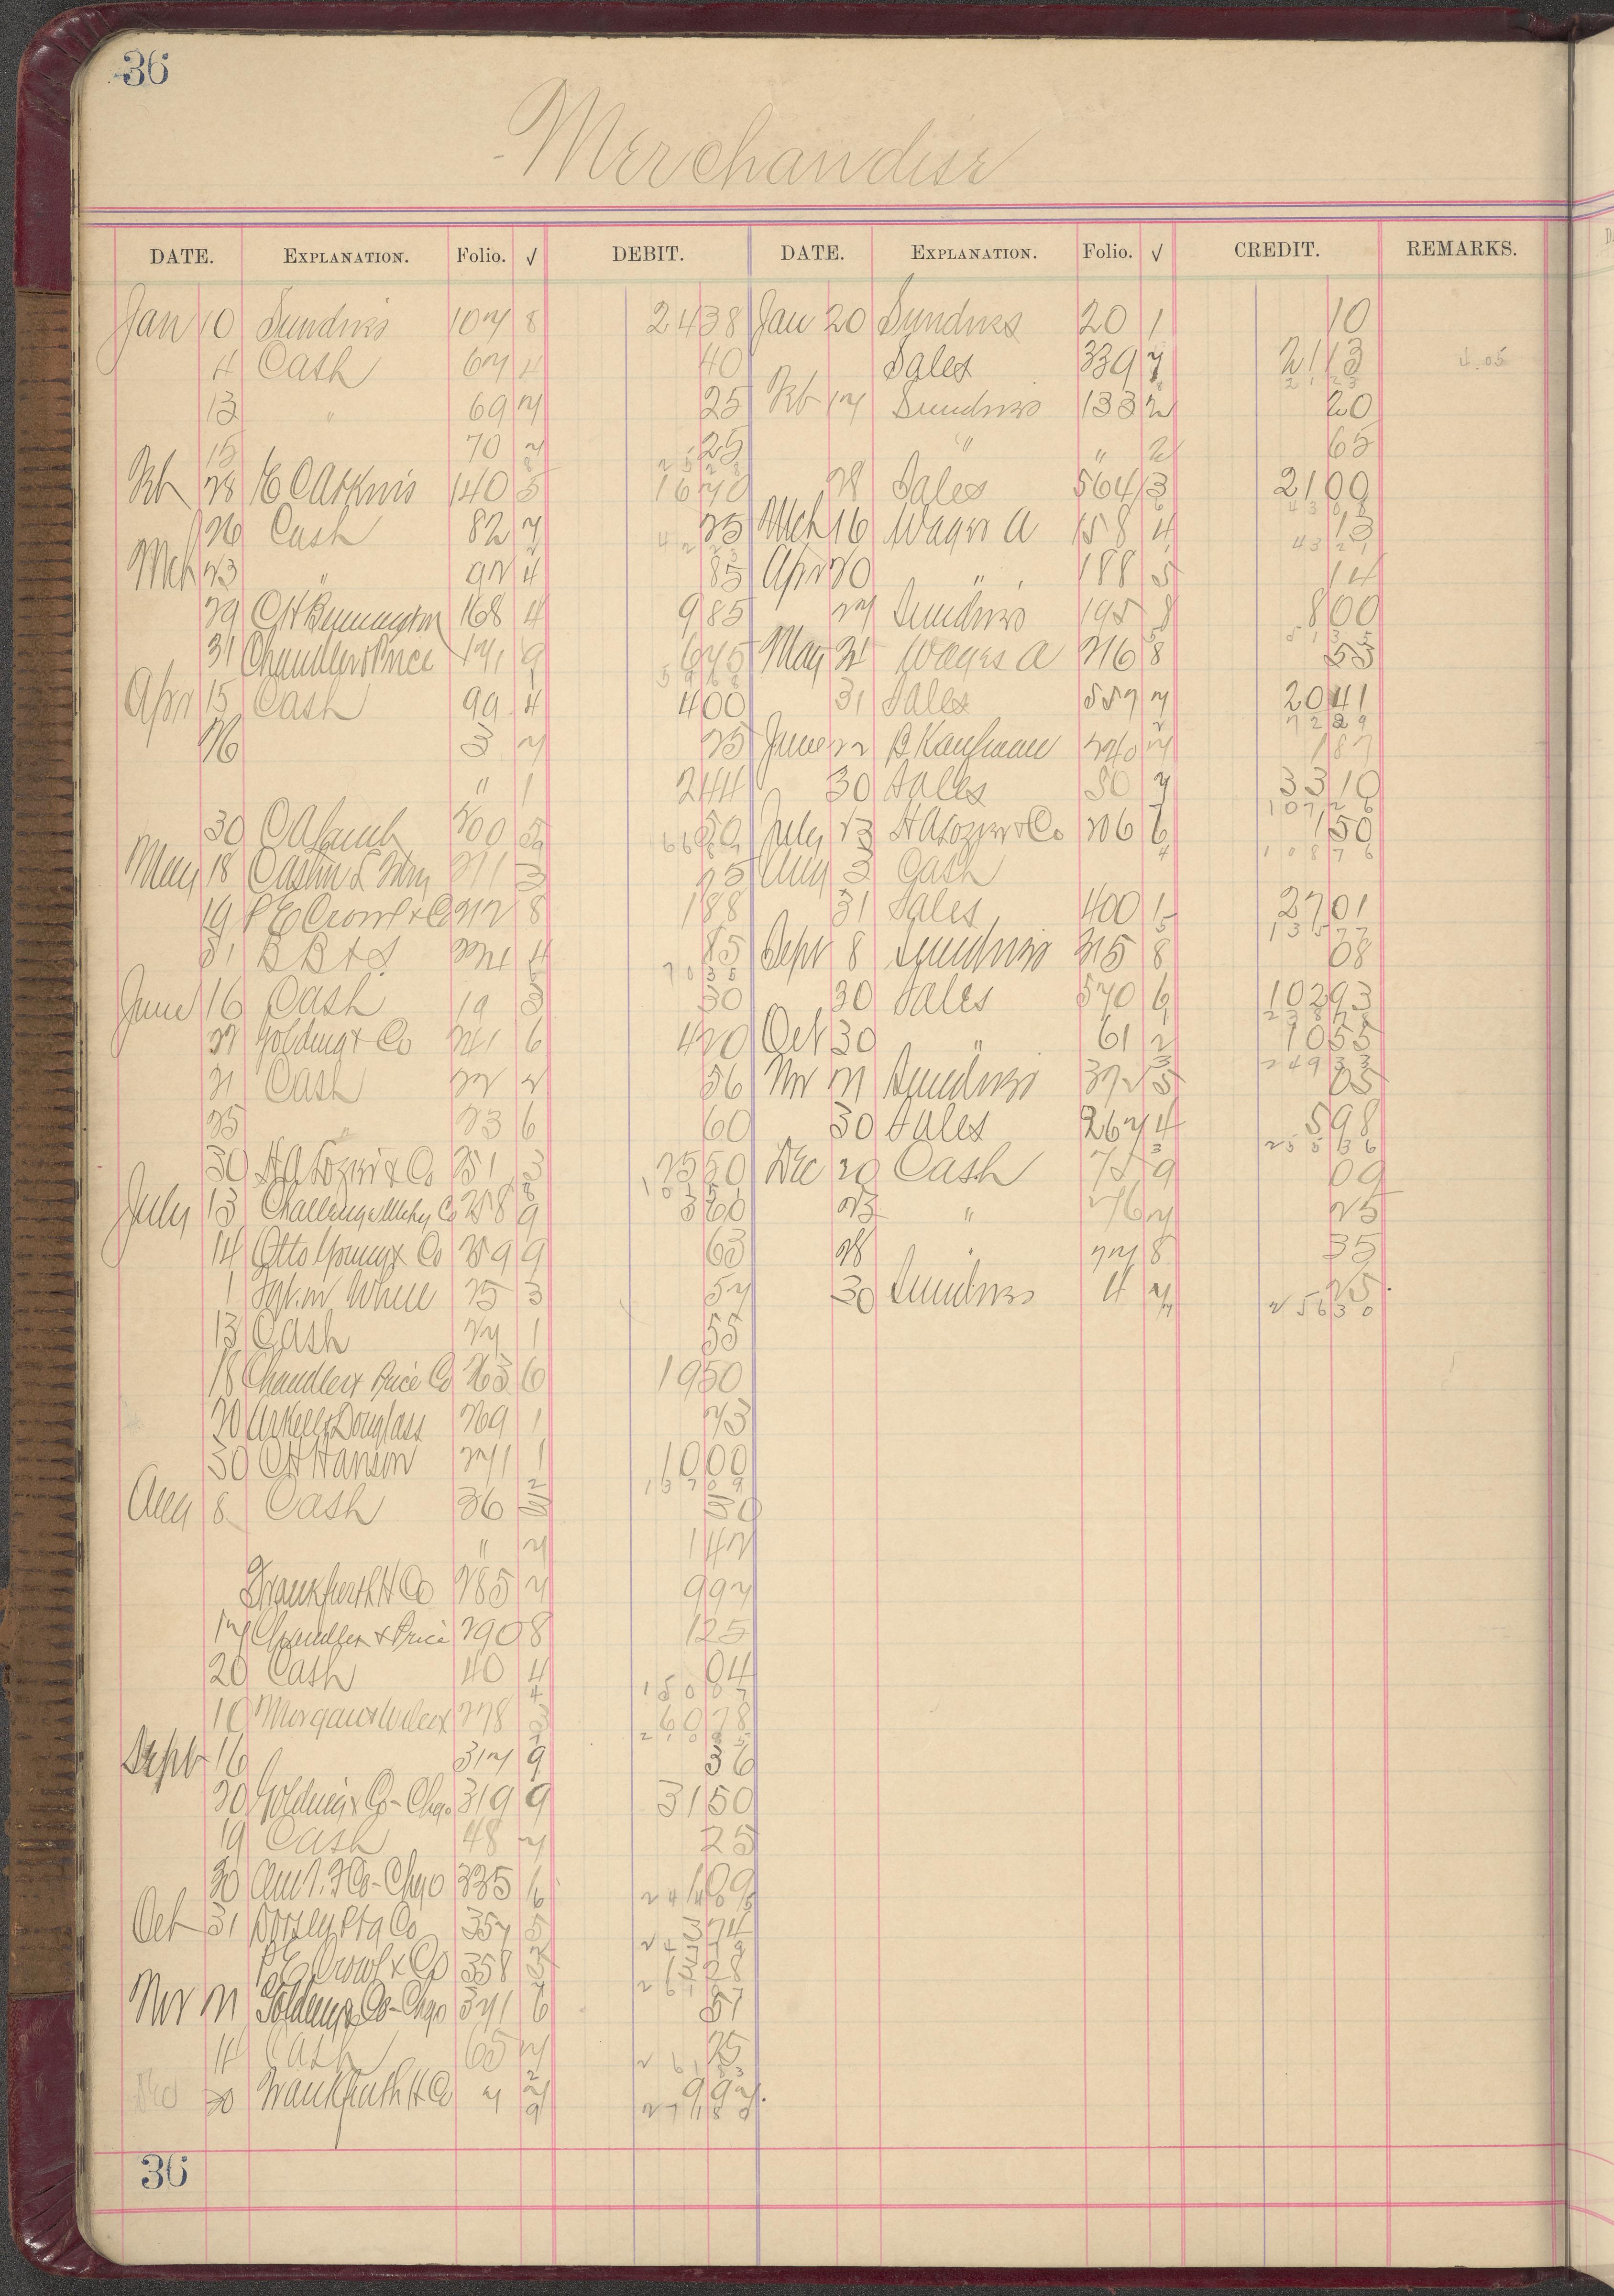 36
Merchandise
DATE. EXPLANATION. Folio. √ DEBIT. DATE. EXPLANATION. Folio. √ CREDIT. REMARKS.
Jan 10 Sundries 107 8 2438 Jan 20 Sundries 20 1 10
4 Cash 67 4 40 Sales 339 7 2113
2123
13 " 69 7 25 Feb 17 Sundries 133 2 20
15 70 7 25 " " 2 65
2528
Feb 28 E C Atkins 140 5 1670 28 Sales 564 3 2100
4308
26 Cash 82 7 25 Mch 16 Wages A 158 4 13
4223 4321
Mch 23 " 92 4 85 Apr 20 " 188 5 14
29 C H 168 4 985 27 Sundries 195 8 800
5135
31 Chandler & Price 171 9 675 May 21 Wages A 216 8 53
5968
Apr 15 Cash 99 4 400 31 Sales 557 7 2041
7229
26 3 7 25 June 22 B Kaufman 240 7 187
" 1 244 30 Sales 80 7 3310
10726
30 C A 200 5 50 July 13 H A Lozier & Co 206 6 150
10876
May 18 211 3 25 Aug 3 Cash
19 P E Crowl & Co 212 8 188 31 Sales 400 1 2701
13577
31 B B & S 4 85 Sept 8 Sundries 315 8 08
June 16 Cash 19 3 30 30 Sales 570 6 10293
27 Golding & Co 241 6 420 Oct 30 " 61 2 1055
24933
21 Cash 22 2 56 Nov 21 Sundries 372 5 05
25 " 23 6 60 30 Sales 267 4 598
25536
30 H A Lozier & Co 251 3 2550 Dec 20 Cash 75 9 09
July 13 Challenge Mchy Co 258 9 360 23 " 76 7 25
14 Otto Young & Co 259 9 63 28 " 77 8 35
1 White 25 3 57 30 Sundries 4 7 25
25630
13 Cash 27 1 55
18 Chandler & Price Co 263 6 1950
20 Arkell & Douglass 269 1 73
30 C H Hanson 271 1 1000
13709
Aug 8 Cash 36 30
" 7 142
Frankfurth H Co 285 7 997
17 Chandler & Price 290 8 125
20 Cash 40 4 04
15007
10 Morgan & Wilcox 278 6078
Sept 16 317 9 36
20 Golding & Co - Chgo 319 9 3150
19 Cash 48 7 25
30 Am T. F Co - Chgo 335 6
Oct 31 Dorsey Ptg Co 357 5 374
P E Crowl & Co 358
Nov 21 Golding & Co - Chgo 371 6 57
14 Cash 65 7 25
Dec 20 Frankfurth H Co 7 7 997
27180
36